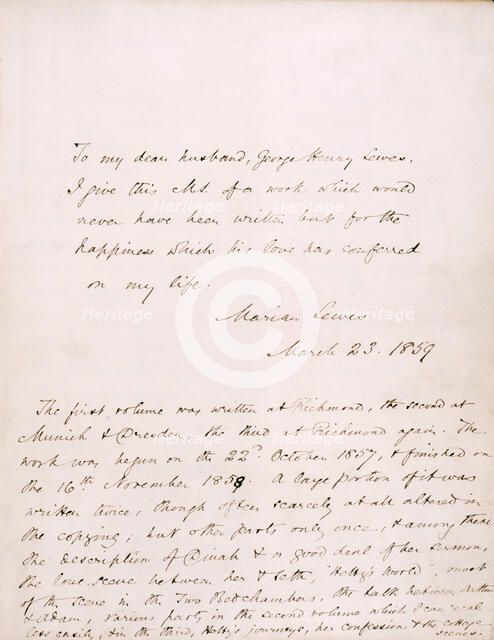 To my dear husband, George Henry Lewes,
I give this M.S. of a work which would
never have been written but for the
happiness which his love has conferred
on my life.
Marian Lewes
March 23. 1859
The first volume was written at Richmond, the second at
Munich & Dresden, the third at Richmond again. The
work was begun on the 22d. October 1857, & finished on
the 16th November 1858. A large portion of it was
written twice, though often scarcely at all altered in
the copying; but other parts only once, & among these
the description of Dinah & a good deal of her sermon,
the love scene between her & Seth, "Hetty's world", most
of the scene in the Two Bedchambers, the talk between Arthur
& Adam, various parts in the second volume which I can recal
less easily, & in the third, Hetty's journeys, her confession & the cottage
scenes.
Heritage
Heritage
Heritage
Heritage
Heritage
Heritage
C